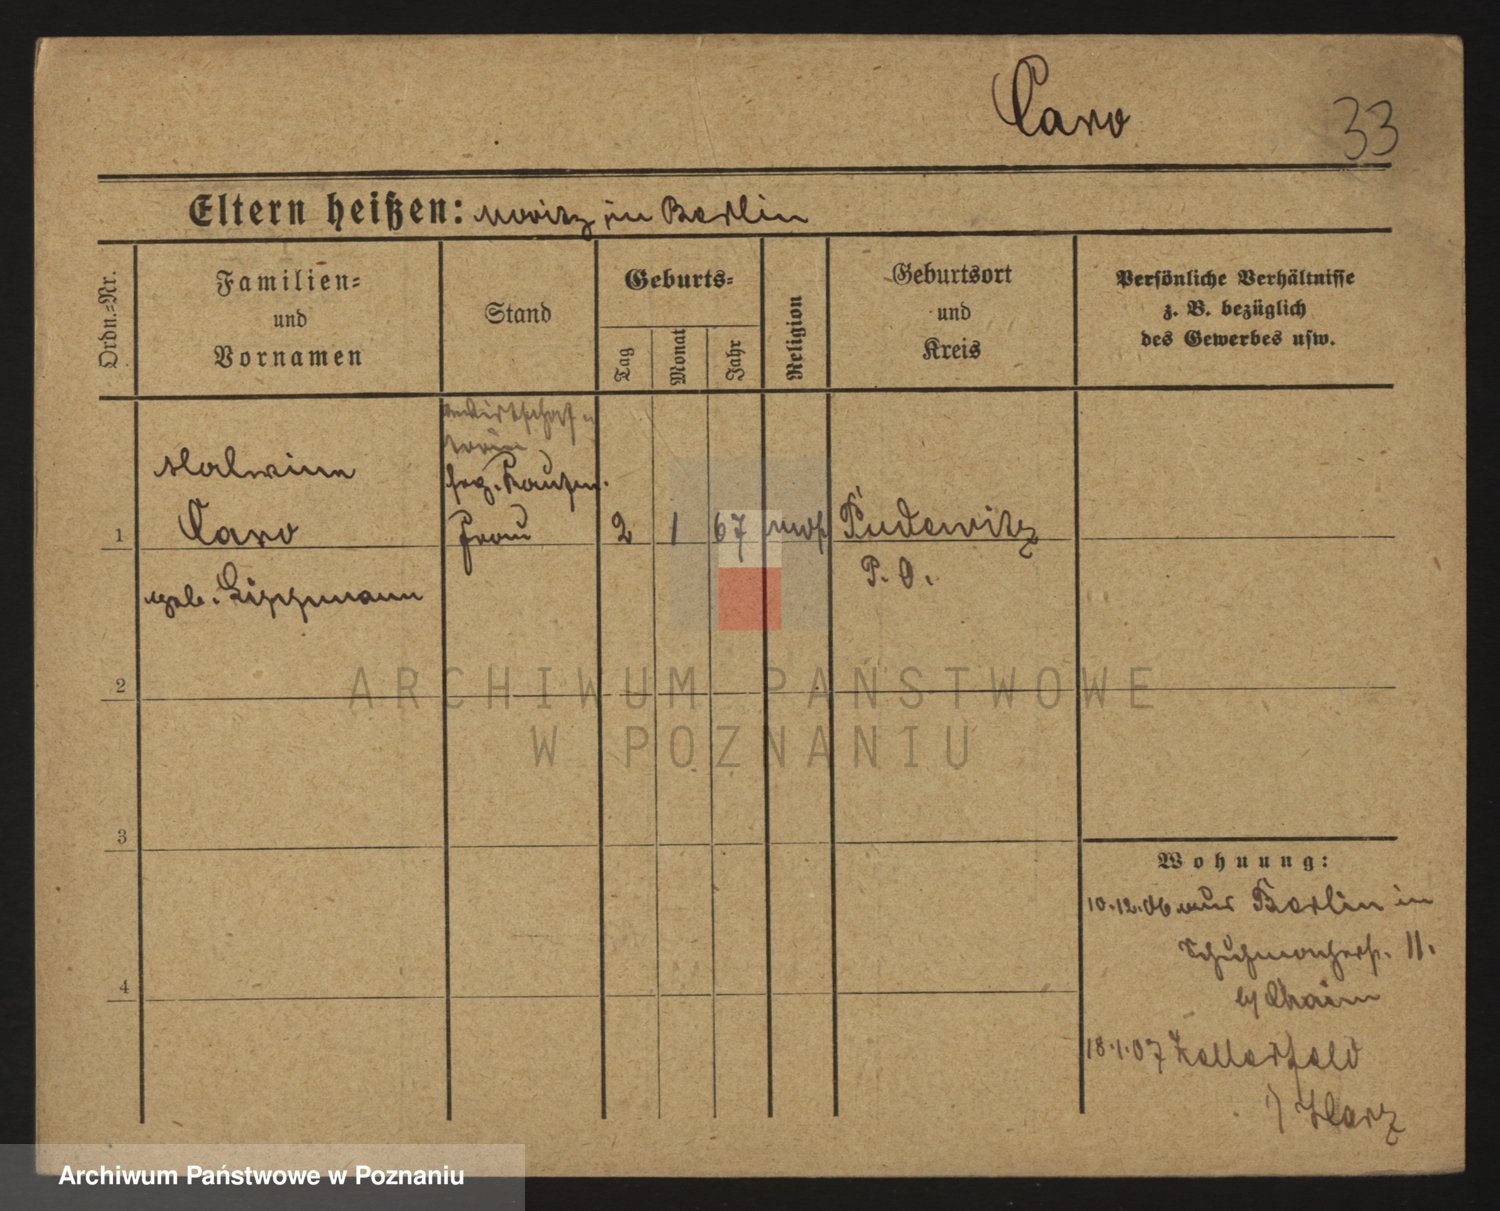 Caro
33
Eltern heißen: Moritz in Berlin
Ordn.-Nr.
Familien-
und
Vornamen
Stand
Geburts-
Tag
Monat
Jahr
Religion
Geburtsort
und
Kreis
Persönliche Verhältnisse
z. B. bezüglich
des Gewerbes usw.
Malwine
Kaufm.
1 Caro Frau 2 1 67 mos Pudewitz
geb. Lippmann P. O.
2
3
4
Wohnung:
10.12.06 aus Berlin in
Schuhmacherstr. 11.
b/ Chaim
18.1.07 Zellerfeld
Harz
ARCHIWUM PAŃSTWOWE
W POZNANIU
Archiwum Państwowe w Poznaniu